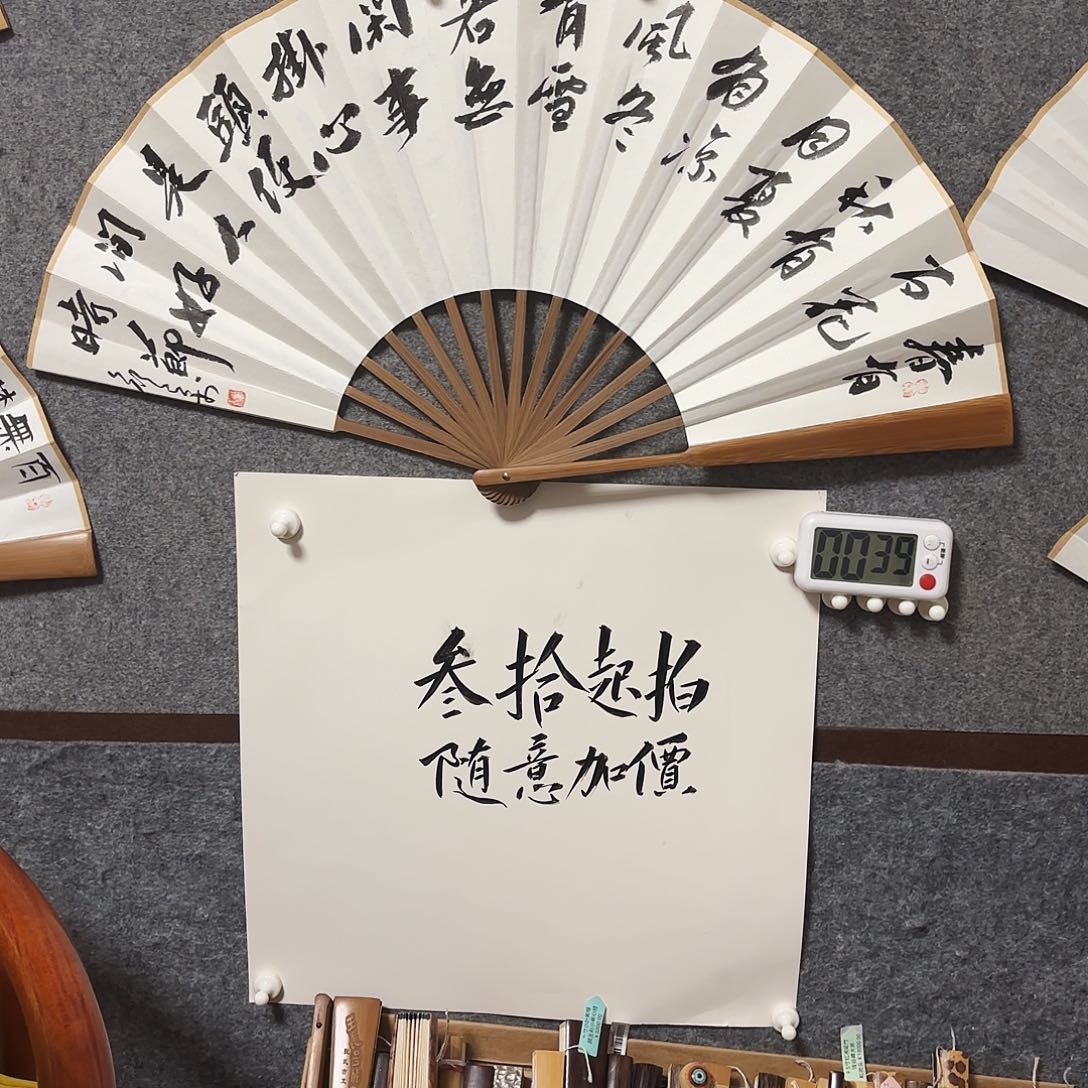 春有
百花
秋有
月夏
有凉
風冬
有雪
若無
閑事
掛心
頭便
是人
间好
時節
叁拾起拍
随意加價
0039